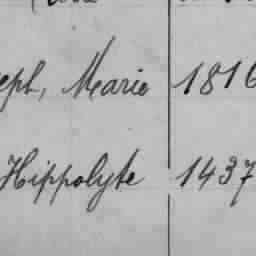 eph, Marie 1816
Hippolyte 1437